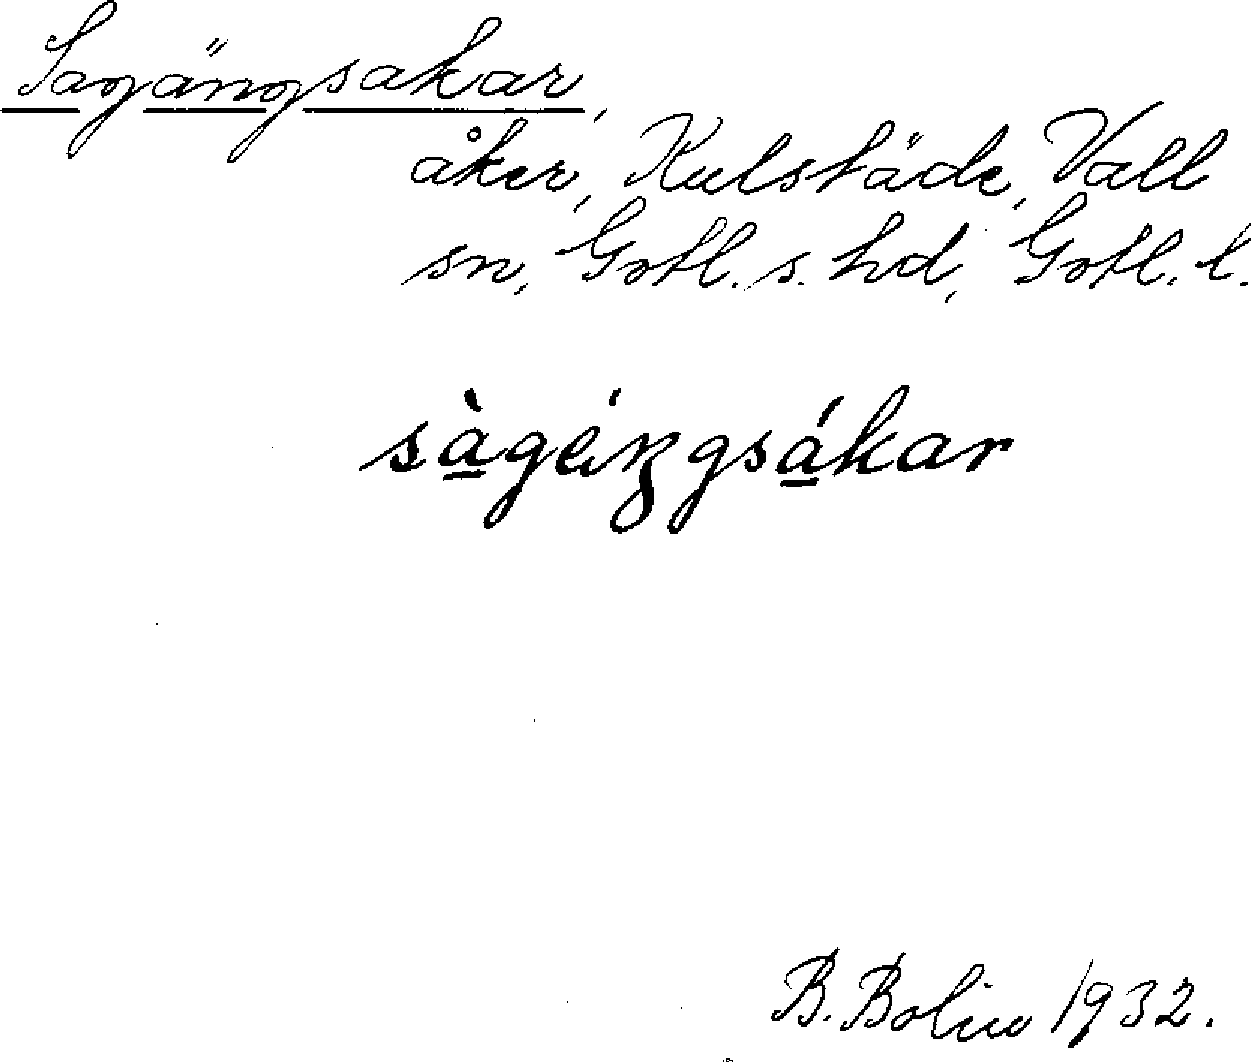 Sagängsakar,
åker, Kulstäde, Vall
sn, Gotl. s. hd, Gotl. l.
sàgéiŋgsákar
B. Bolin 1932.